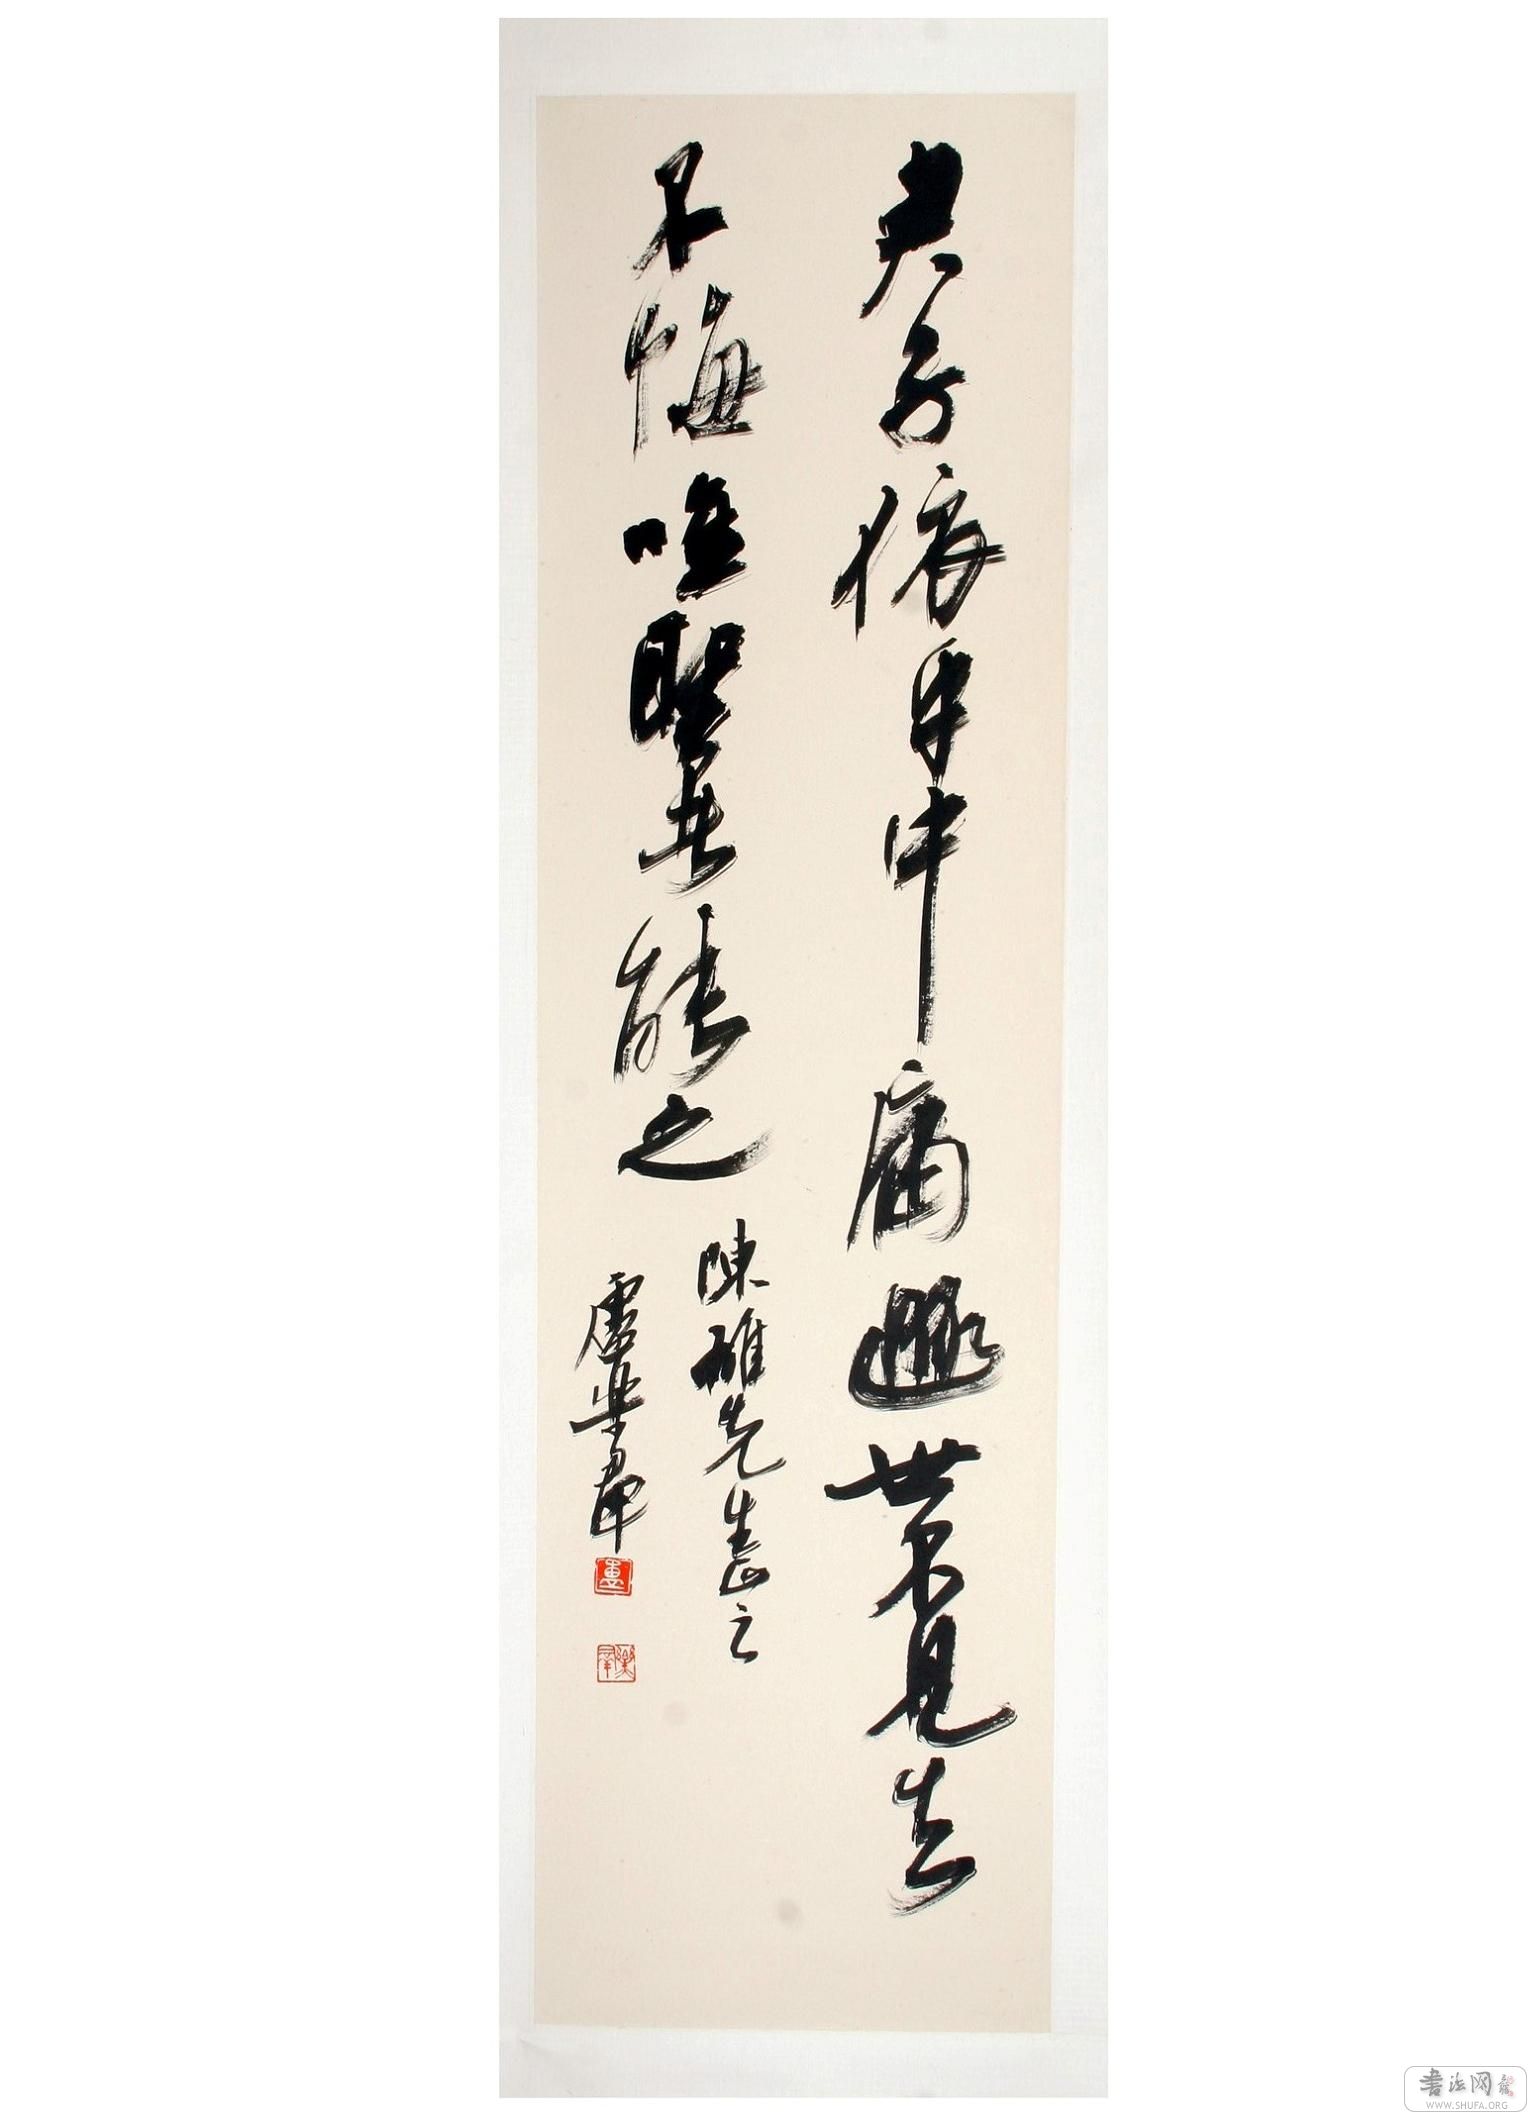 君子依乎中庸遯世不見知
不悔唯聖者能之
陳先生正之
盧樂群
盧
樂群
書法网
WWW.SHUFA.ORG